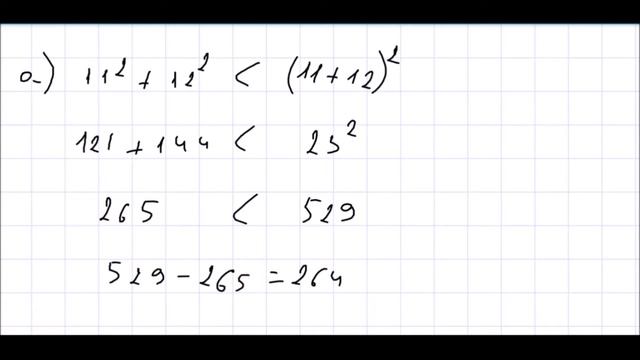 a) 11² + 12² < (11+12)²
121 + 144 < 23²
265 < 529
529 - 265 = 264